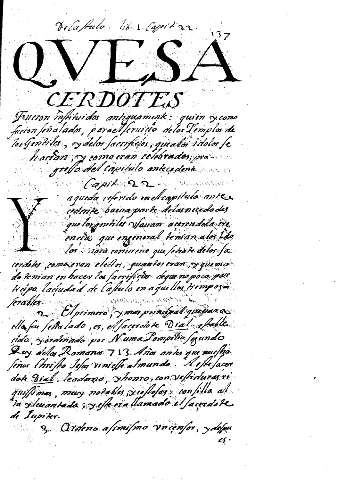 De Castulo. lib. 1. Capit. 22
137
QVE SA
CERDOTES
fueron instituidos antiguamente: quien y como
fueron señalados, para el seruicio de los Templos de
los Gentiles, y de los sacrificios, que a los idolos se
hacian, y como eran celebrados:
gresso del capitulo antecedente
Capit. 22
Ya queda referido en el capitulo ante
cedente buena parte de las necedades
que los gentiles usauan acerca de la
que en general tenian a los
que de los sa
cerdotes, como eran electos, quantos eran, y que mo
do tenian en hacer los sacrificios de que no poco par
ticipo la ciudad de Castulo en aquellos tiempos mi
serables.
2. El primero, y mas principal que
ella fue señalado, es, el sacerdote Dial, estable
cido, y ordenado por Numa Pompilio, segundo
Rey de los Romanos 713. Años antes que nuestro
señor Christo Jesus viniesse al mundo. A este sacer
dote Dial, y honro, con vestiduras ri
quissimas, muy notables, y costosas: con silla al
ta y leuantada; y este era llamado el sacerdote
de Iupiter.
3. Ordeno assimismo y despu
es.